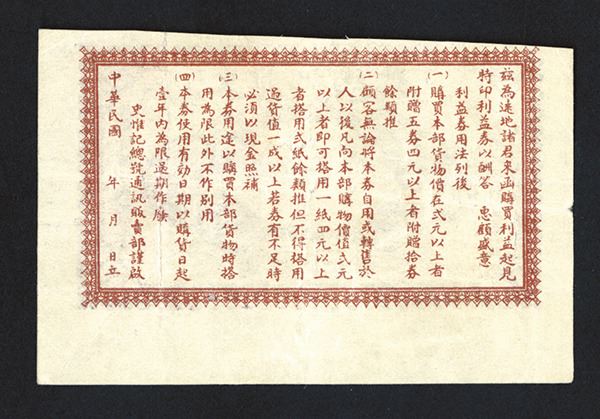 茲為遠地諸君來函購買利益起見
特印利益券以酬答　惠顧盛意
利益券用法列後
(一)購買本部貨物價在弍元以上者
附贈五券四元以上者附贈拾券
餘類推
(二)顧客無論將本券自用或轉售於
人以後凡向本部購物價值弍元
以上者即可搭用一紙四元以上
者搭用弍紙餘類推但不得搭用
過貨值一成以上若券有不足時
必須以現金照補
(三)本券用途以購買本部貨物時搭
用為限此外不作別用
(四)本券使用有効日期以購貨日起
壹年內為限過期作廢
史惟記總號通訊販賣部謹啟
中華民國　年　月　日立